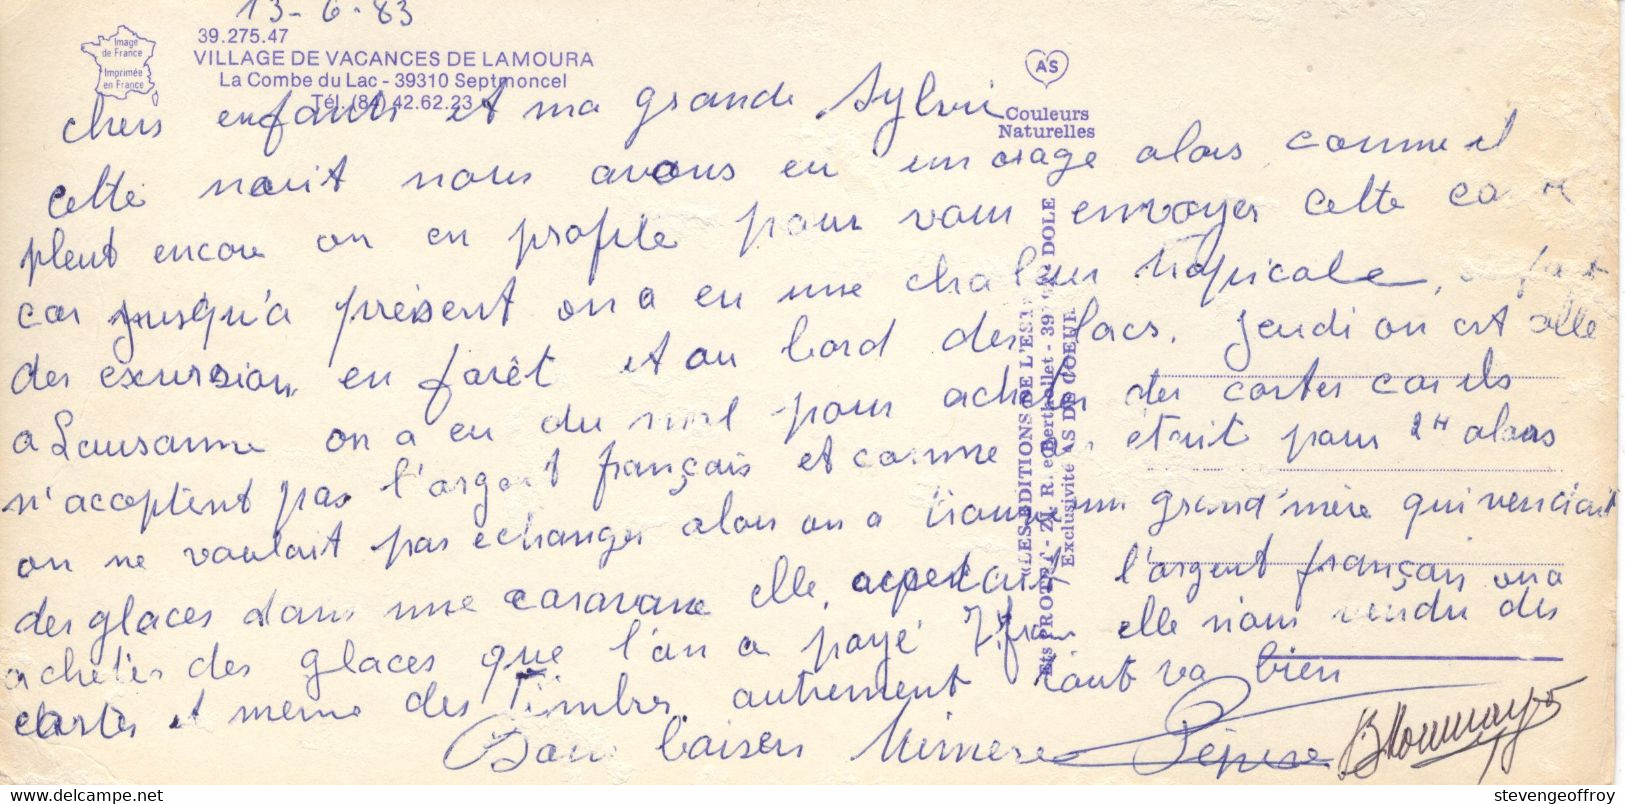 13-6-83
Image de France
Imprimée en France
39.275.47
VILLAGE DE VACANCES DE LAMOURA
La Combe du Lac - 39310 Septmoncel
Tél. (84) 42.62.23
AS
Couleurs
Naturelles
chers enfants et ma grande Sylvie
cette nuit nous avons eu un orage alors comme il
pleut encore on en profite pour vous envoyer cette carte
car jusqu'a présent on a eu une chaleur tropicale, on fait
des excursion en forêt et au bord des lacs. Jeudi on est allé
a Lausanne on a eu du mal pour acheter des cartes car ils
n'acceptent pas l'argent français et comme on était pour 2H alors
on ne voulait pas echanger alors on a trouvé une grand'mère qui vendait
des glaces dans une caravane elle acceptait l'argent français on a
achetés des glaces que l'on a payé 7 frs elle nous vendu des
cartes et meme des timbres autrement tout va bien
Bons baisers Mémère Pépère
«LES EDITIONS DE L'EST»
Ets PROTET - ZI. R. Berthollet - 39 DOLE
Exclusivité AS DE COEUR
stevengeoffroy
delcampe.net